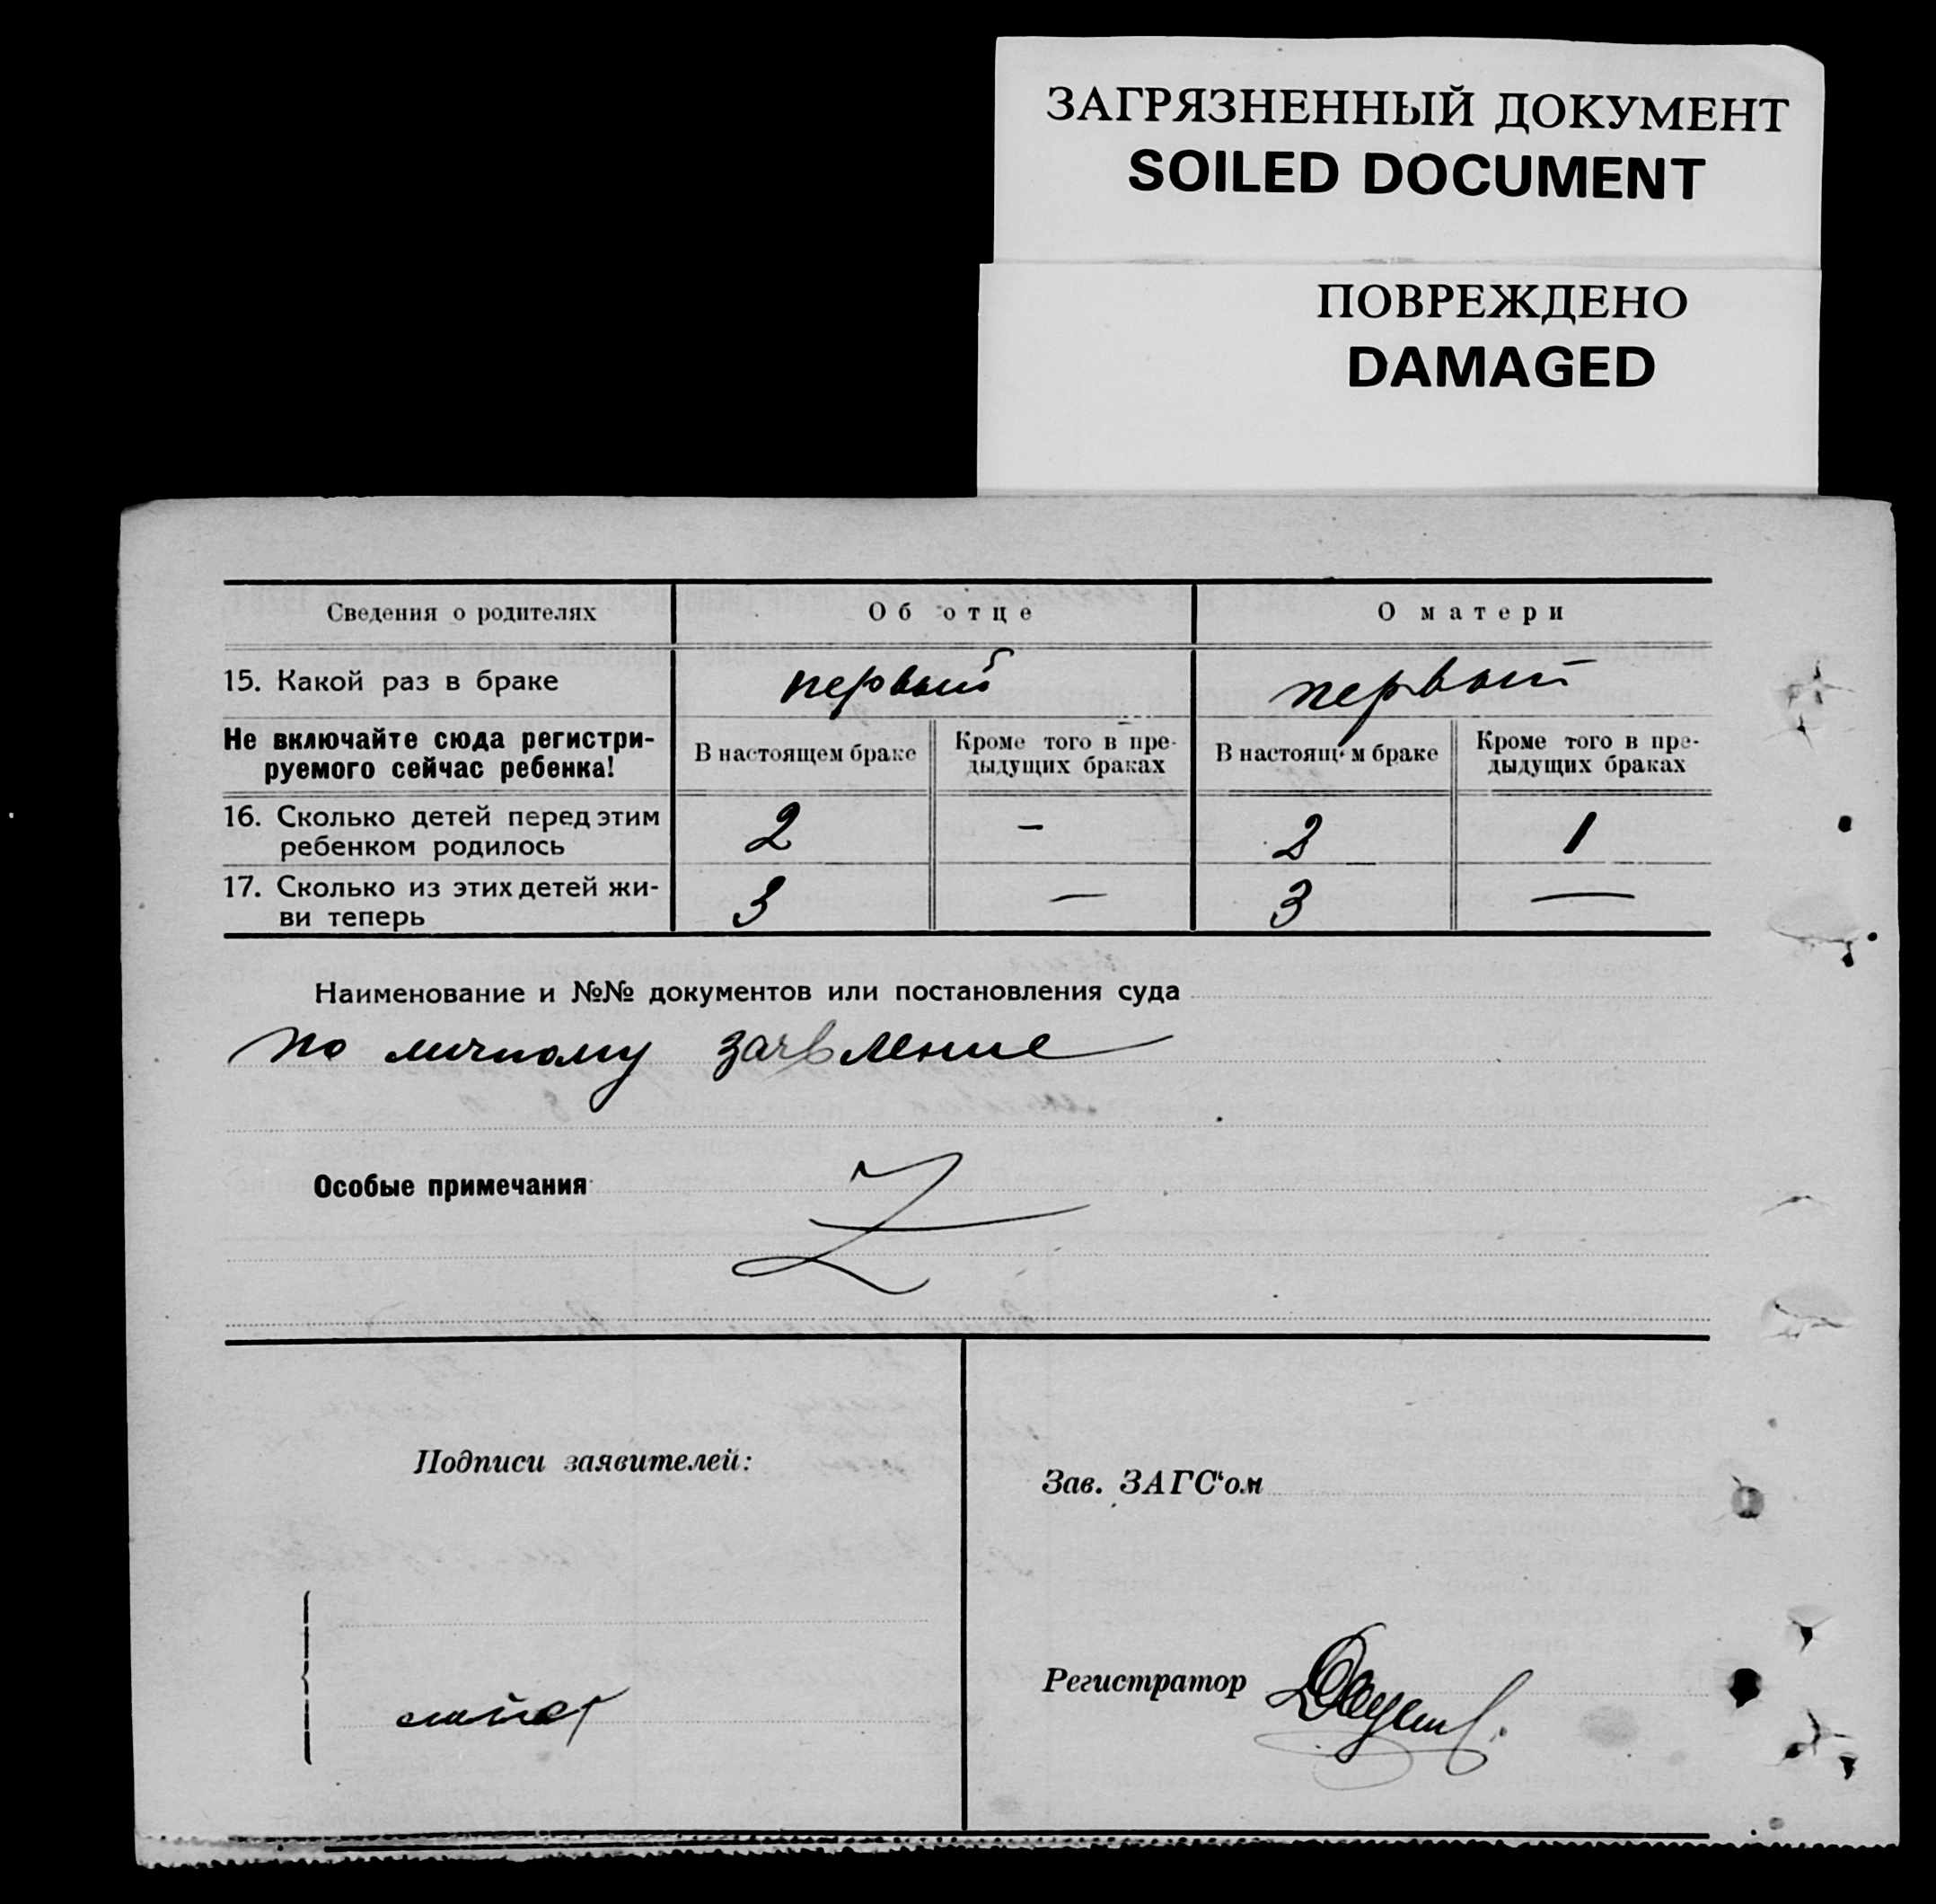 ЗАГРЯЗНЕННЫЙ ДОКУМЕНТ
SOILED DOCUMENT
ПОВРЕЖДЕНО
DAMAGED
Сведения о родителях Об отце О матери
15. Какой раз в браке первый первый
Не включайте сюда регистри-
руемого сейчас ребенка!
В настоящем браке
Кроме того в пре-
дыдущих браках
В настоящем браке
Кроме того в пре-
дыдущих браках
16. Сколько детей перед этим
ребенком родилось
2 – 2 1
17. Сколько из этих детей жи-
ви теперь
3 — 3 —
Наименование и №№ документов или постановления суда
по личному заявление
Особые примечания
Z
Подписи заявителей:
Зав. ЗАГС‘ом
Регистратор